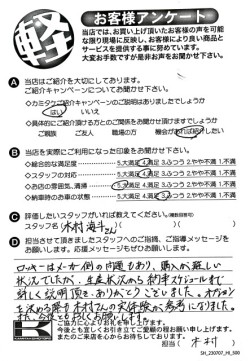 軽
お客様アンケート
当店では、お買い上げ頂いたお客様の声を可能
な限り現場に反映し、お客様により良い商品と
サービスを提供する事に努めています。
大変お手数ですが是非お声をお聞かせ下さい。
A 当店はご紹介を大切にしております。
ご紹介キャンペーンについてお聞かせ下さい。
◇カミタケご紹介キャンペーンのご説明はありましたでしょうか
はい いいえ
◇具体的にご紹介頂ける方とのご関係をお聞かせ頂けますでしょうか
ご親族 ご友人 職場の方 機会があれば紹介したい
B 当店を実際にご利用になった印象をお聞かせ下さい。
◇総合的な満足度 5.大満足 4.満足 3.ふつう 2.やや不満 1.不満
◇スタッフの対応 5.大満足 4.満足 3.ふつう 2.やや不満 1.不満
◇お店の雰囲気、清掃 5.大満足 4.満足 3.ふつう 2.やや不満 1.不満
◇納車時のお車の状態 5.大満足 4.満足 3.ふつう 2.やや不満 1.不満
C 評価したいスタッフがいれば教えてください。(複数回答可)
スタッフ名( 木村 海斗さん )
D 担当させて頂きましたスタッフへのご指摘、ご指導メッセージを
お願いします。応援メッセージもぜひお願いします。
ロッキーはメーカー側の問題もあり、購入が難しい
状況でしたが、生産状況から納車スケジュールまで
詳しく説明頂きありがとうございました。オプション
を決める際も木村さんの実体験が参考になりました。
また、今後とも宜しくお願いします。
ご協力に心よりお礼を申し上げます。
今後とも末永くお引き立てご愛顧の程お願い申し上げます。
担当( 木村 )
SH_230707_H1_0700